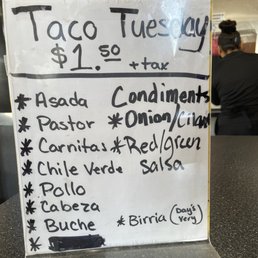 Taco Tuesday
$1.50 + tax
* Asada
* Pastor
* Carnitas
* Chile Verde
* Pollo
* Cabeza
* Buche
*
Condiments
* Onion/
* Red/green
Salsa
* Birria (Day's Very)